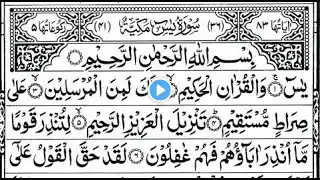 اٰیَاتُهَا ٨٣ (٣٦) سُوْرَةُ يٰسٓ مَكِّيَّةٌ (٤١) رُكُوْعَاتُهَا ٥
بِسْمِ اللّٰهِ الرَّحْمٰنِ الرَّحِيْمِ
يٰسٓ ۝ وَالْقُرْاٰنِ الْحَكِيْمِ ۝ كَ لَمِنَ الْمُرْسَلِيْنَ ۝ عَلٰى
صِرَاطٍ مُّسْتَقِيْمٍ ۝ تَنْزِيْلَ الْعَزِيْزِ الرَّحِيْمِ ۝ لِتُنْذِرَ قَوْمًا
مَّاۤ اُنْذِرَ اٰبَآؤُهُمْ فَهُمْ غٰفِلُوْنَ ۝ لَقَدْ حَقَّ الْقَوْلُ عَلٰٓى